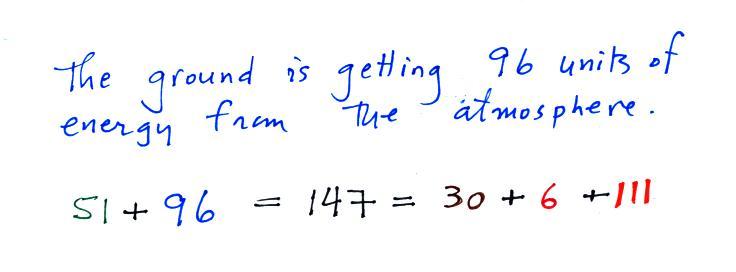 The ground is getting 96 units of
energy from the atmosphere.
51 + 96 = 147 = 30 + 6 + 111